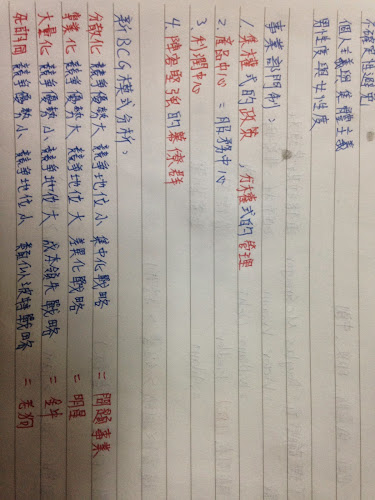 不確定性避免
個人主義與集體主義
男性度與女性度
事業部門制:
1.集權式的政策，分權式的管理
2.產品中心 = 服務中心
3.利潤中心
4.陣容堅強的幕僚群
新BCG模式分析:
分散化 競爭優勢大 競爭地位小 集中化戰略 = 問題事業
專業化 競爭優勢大 競爭地位大 差異化戰略 = 明星
大量化 競爭優勢小 競爭地位大 成本領先戰略 = 金牛
死胡同 競爭優勢小 競爭地位小 類似波特戰略 = 老狗